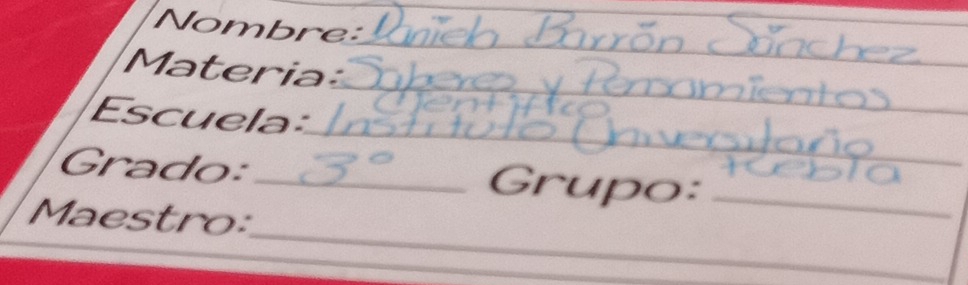 Nombre: Daniela Barrón Sánchez
Materia: Saberes y Pensamientos
Cientifico
Escuela: Instituto Universitario
Grado: 3° Grupo:
Maestro: